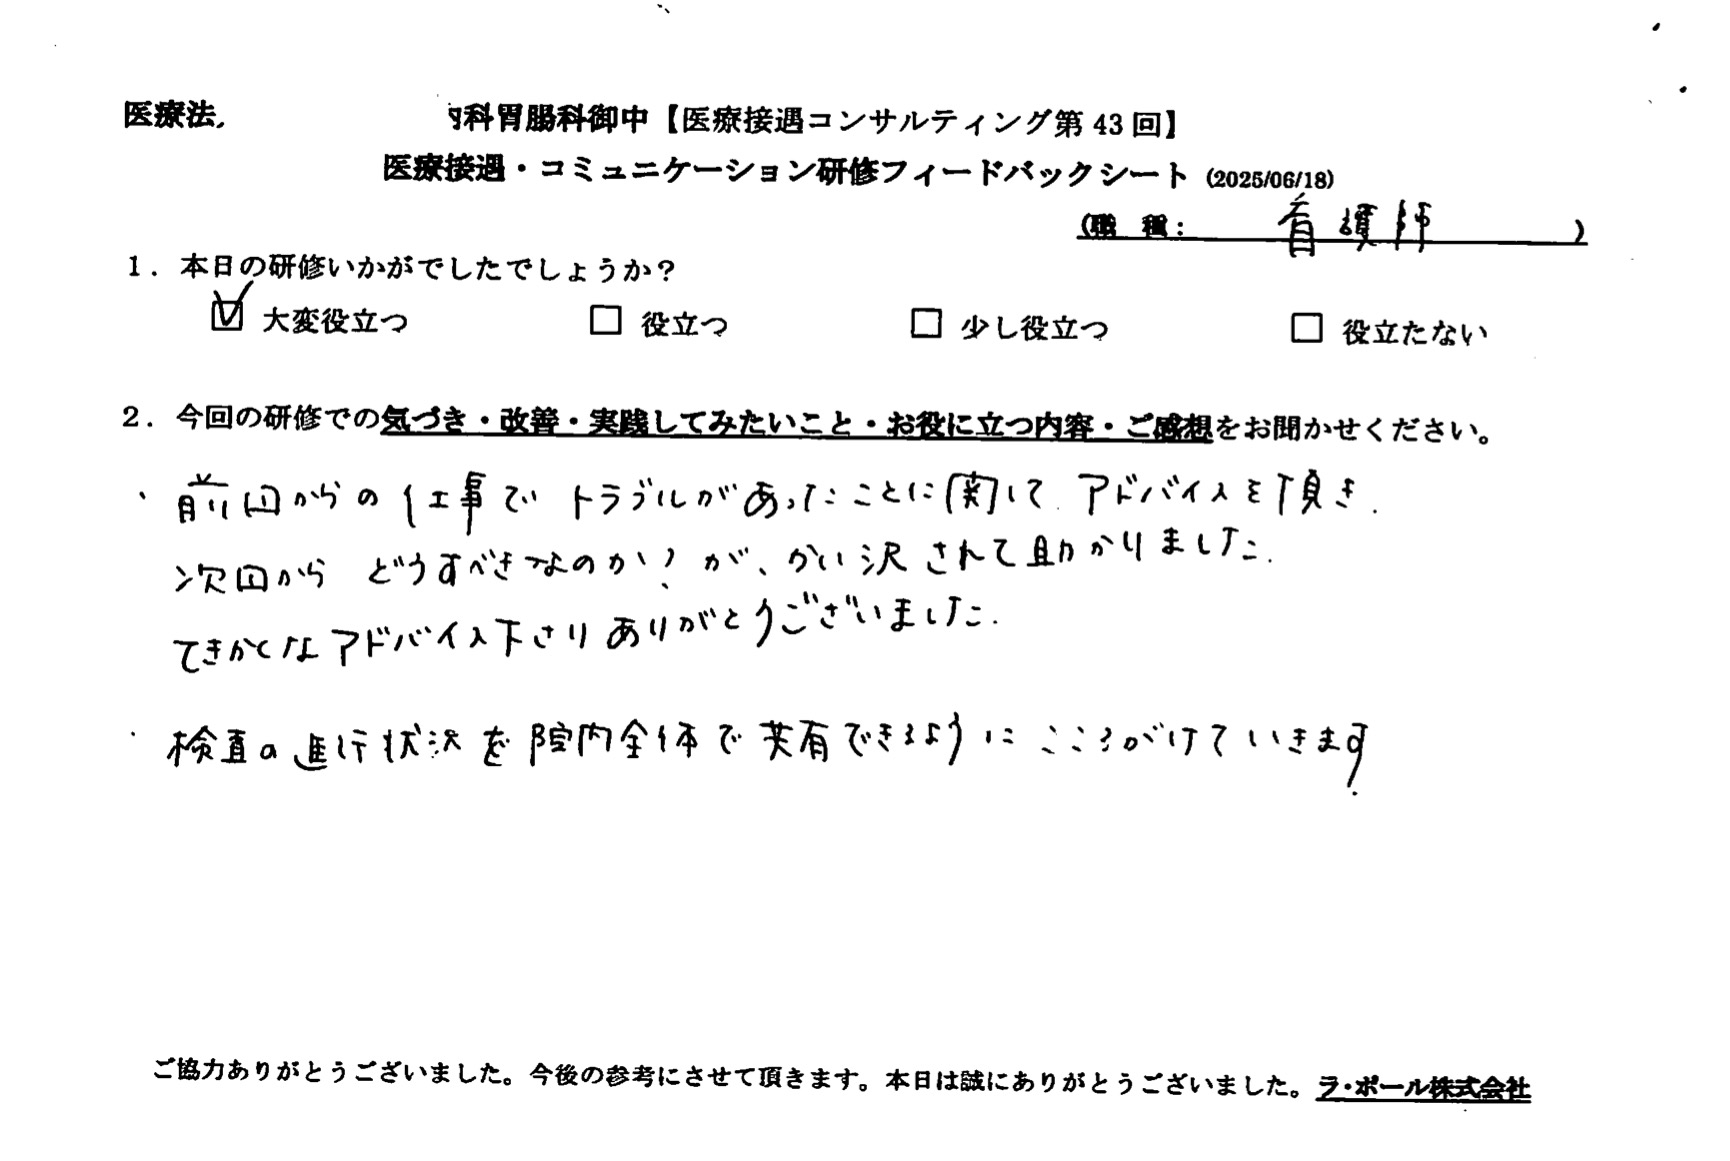 医療法 内科胃腸科御中【医療接遇コンサルティング第 43 回】
医療接遇・コミュニケーション研修フィードバックシート (2025/06/18)
(職 種: 看護師 )
1. 本日の研修いかがでしたでしょうか?
☑ 大変役立つ □ 役立つ □ 少し役立つ □ 役立たない
2. 今回の研修での気づき・改善・実践してみたいこと・お役に立つ内容・ご感想をお聞かせください。
・前回からの仕事で トラブルがあったことに関して アドバイスを頂き.
次回から どうすべきなのか? が、かい決されて助かりました.
てきかくなアドバイス下さりありがとうございました.
・検査の進行状況を院内全体で共有できるように こころがけていきます.
ご協力ありがとうございました。今後の参考にさせて頂きます。本日は誠にありがとうございました。ラ・ポール株式会社